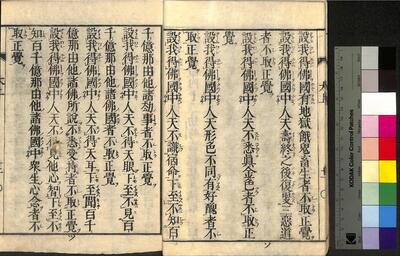 設我得佛國有地獄餓鬼畜生者不取正覺
設我得佛國中人天壽終之後復更三惡道
者不取正覺
設我得佛國中人天不悉眞金色者不取正
覺
設我得佛國中人天形色不同有好醜者不
取正覺
設我得佛國中人天不識宿命下至不知百
千億那由他諸劫事者不取正覺
設我得佛國中人天不得天眼下至不見百
千億那由他諸佛國者不取正覺
設我得佛國中人天不得天耳下至聞百千
億那由他諸佛所說不悉受持者不取正覺
設我得佛國中人天不得見他心智下至不
知百千億那由他諸佛國中衆生心念者不
取正覺
KODAK Color Control Patches